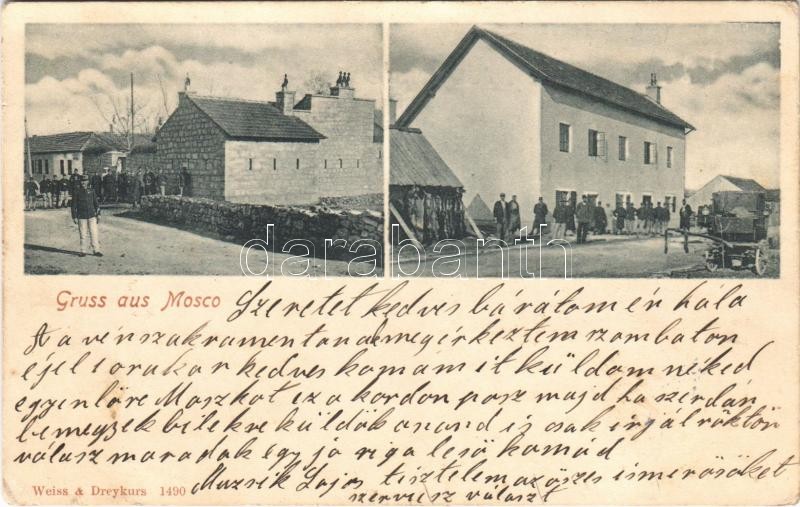 darabanth
Gruss aus Mosco
Szeretet kedves barátom ér hála
A a vén szakramentan de megérkeztem szombaton
éjel 1 orakar kedves komám it küldom néked
egyenlőre Moszkot ez a kordon posz majd ha szerdán
bemegyek bilekre küldök anand is csak irgál röktön
válasz maradok egy jó riga leső komád
Muzsik Lajos tisztelem az öszes ismerősöket
szervusz választ
Weiss & Dreykurs 1490